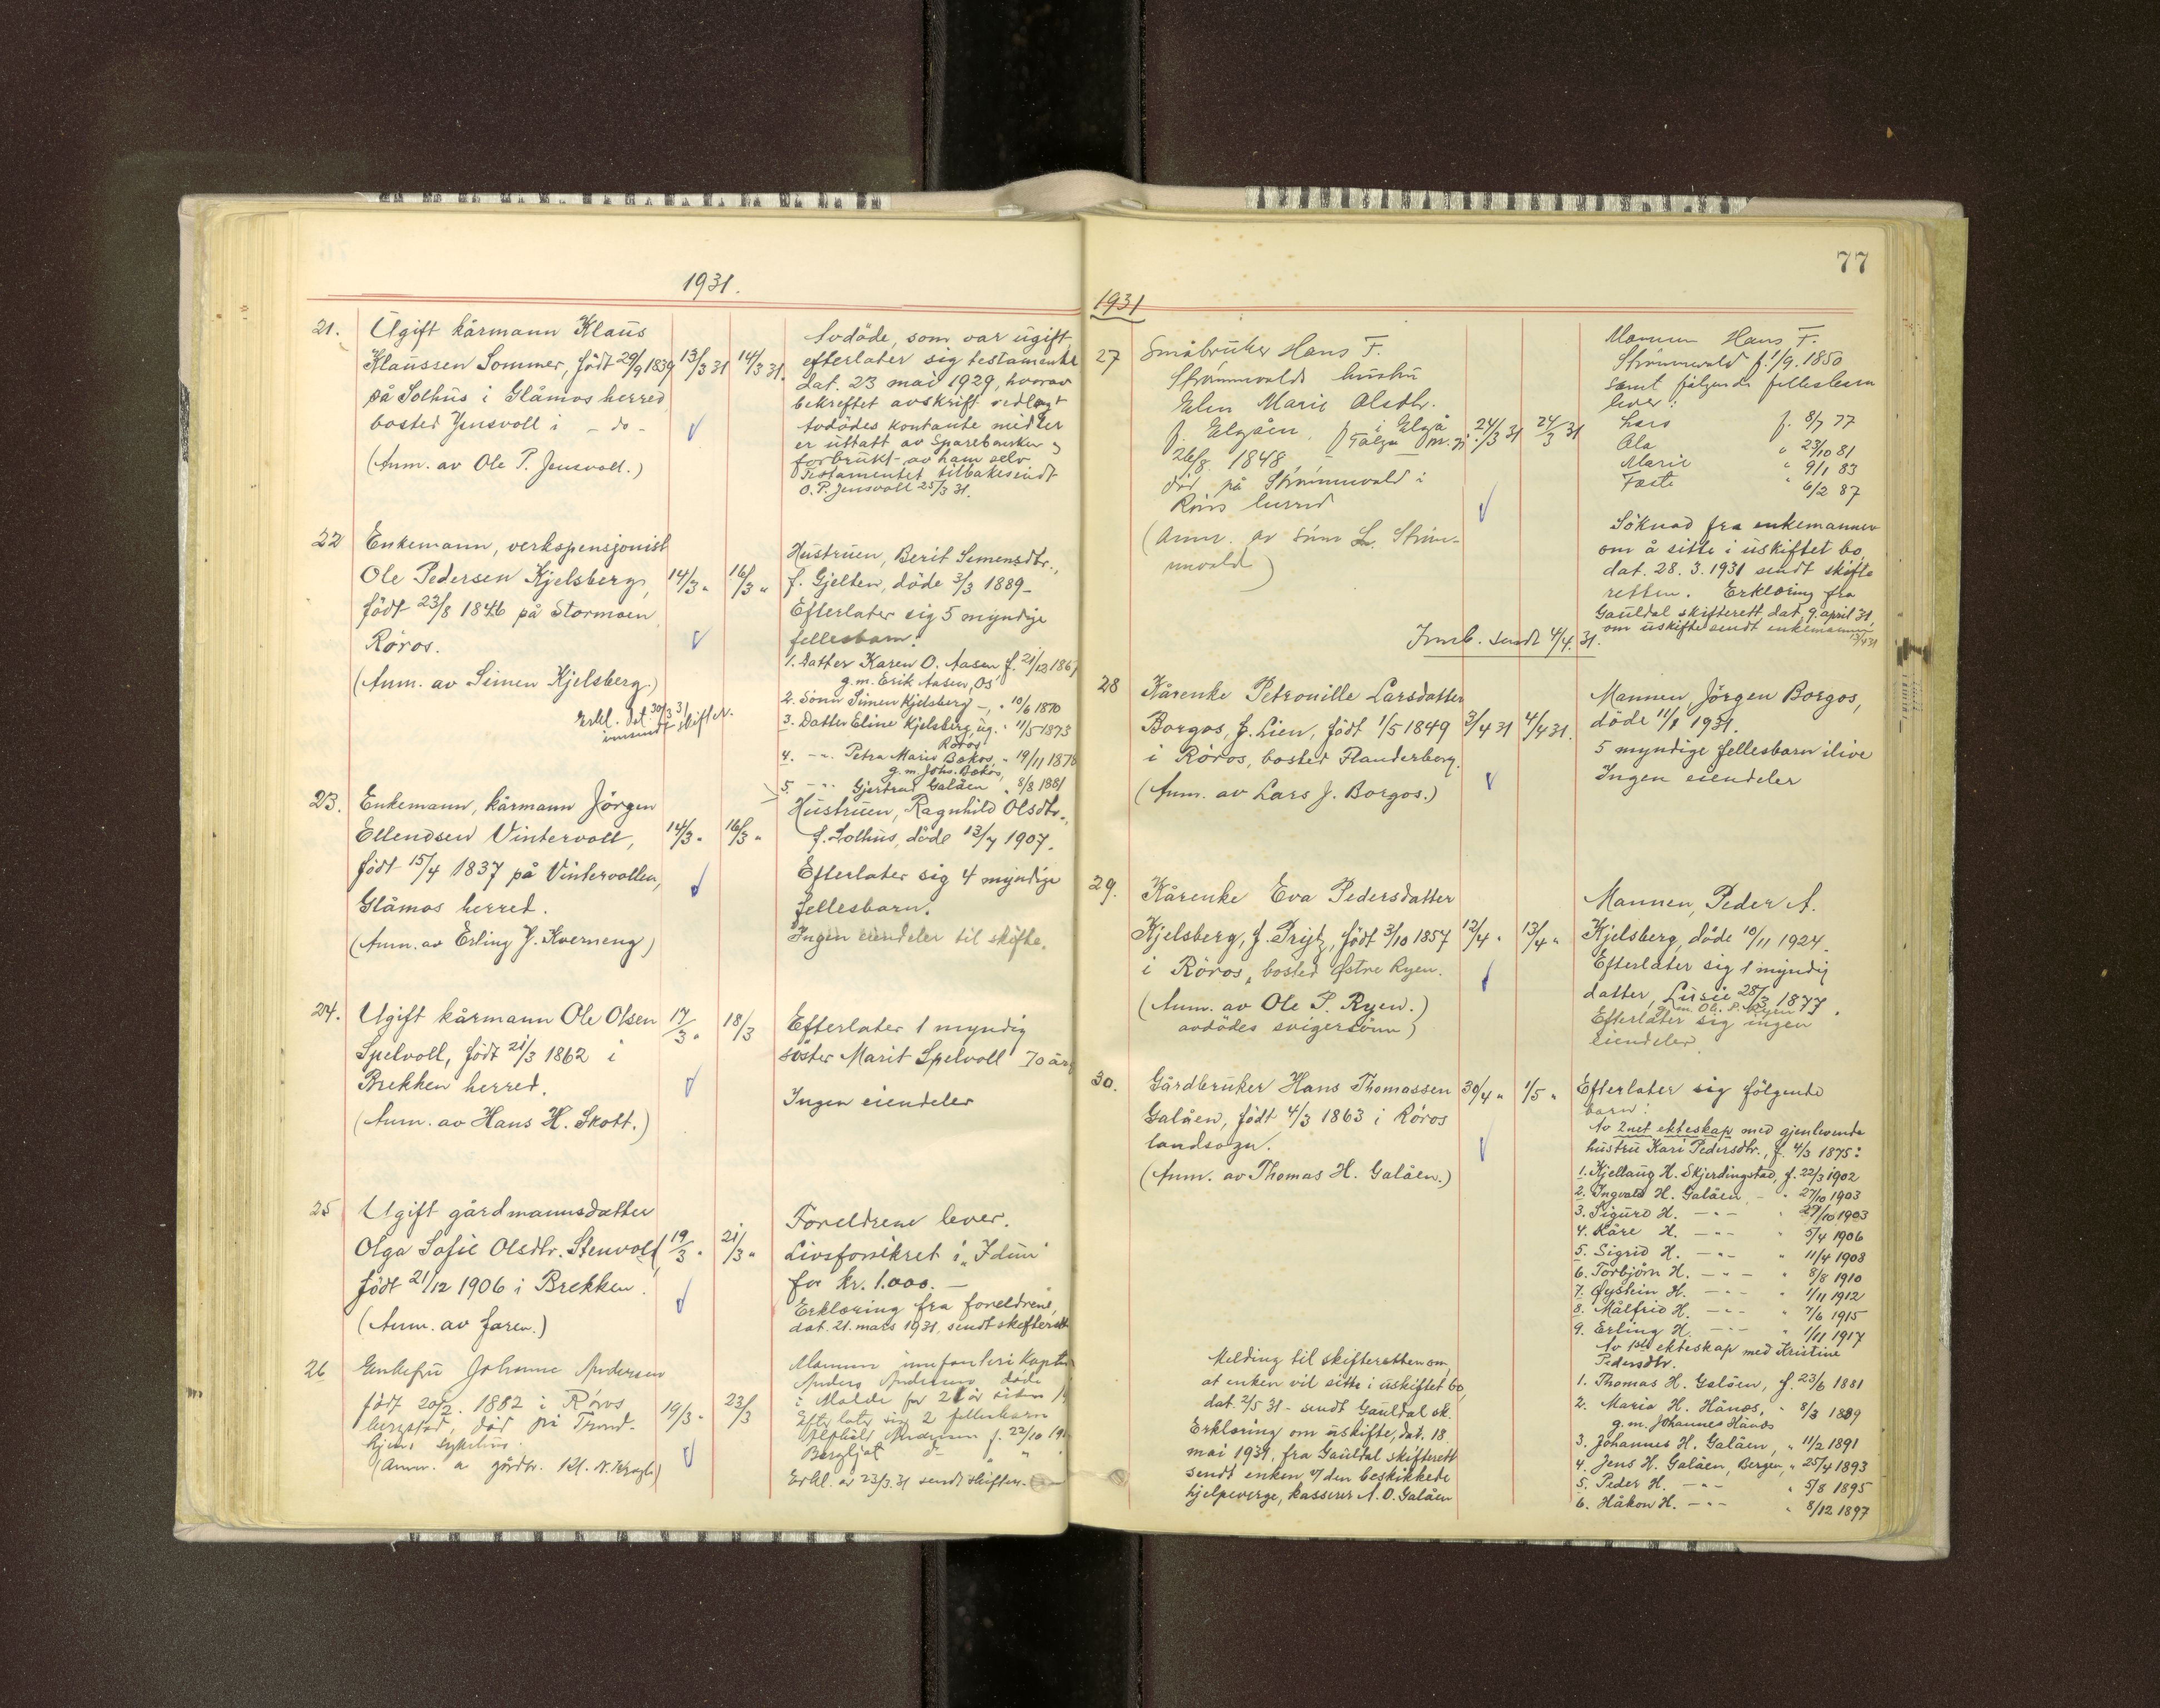 1931.
21. Ugift kårmann Klaus
Klaussen Sommer, født 29/9 1839 13/3 31 14/3 31.
på Solhus i Glåmos herred
bosted Jensvoll i - do -
(Anm. av Ole P. Jensvoll.)
Avdöde, som var ugift,
efterlater sig testamente
dat. 23 mai 1929, hvorav
bekreftet avskrift vedlagt
Avdödes kontante midler
er uttatt av Sparebanken og
forbrukt av ham selv
Testamentet tilbakesendt
O. P. Jensvoll 25/3 31.
22 Enkemann, verkspensjonist
Ole Pedersen Kjelsberg, 14/3 " 16/3 "
født 23/8 1846 på Stormoen
Röros.
(Anm. av Simen Kjelsberg.)
Erkl. dat. 30/3 31
innsendt skifter.
Hustruen, Berit Simensdtr.,
f. Gjelten, döde 3/3 1889 -
Efterlater sig 5 myndige
fellesbarn:
1. Datter Karen O. Aasen f. 21/12 1867
g.m. Erik Aasen, Os
2. Sönn Simen Kjelsberg -, " 10/6 1870
3. Datter Eline Kjelsberg, ug. " 11/5 1873
Röros
4. -"- Petra Marie Bakos, " 19/11 1878
g.m. Johs. Bakos,
5. -"- Gjertrud Galåen " 8/8 1881
23. Enkemann, kårmann Jörgen
Ellendsen Vintervoll, 14/3 " 16/3 "
født 15/4 1837 på Vintervollen,
Glåmos herred.
(Anm. av Erling J. Kverneng)
Hustruen, Ragnhild Olsdtr.,
f. Solhus, döde 13/7 1907.
Efterlater sig 4 myndige
fellesbarn.
Ingen eiendeler til skifte.
24. Ugift kårmann Ole Olsen 17/3 " 18/3
Spelvoll, født 21/3 1862 i
Brekken herred.
(Anm. av Hans H. Skott.)
Efterlater 1 myndig
söster Marit Spelvoll 70 år,
Ingen eiendeler
25 Ugift gårdmannsdatter
Olga Sofie Olsdtr. Stenvold, 19/3 " 21/3 "
født 21/12 1906 i Brekken.
(Anm. av faren.)
Foreldrene lever.
Livsforsikret i "Idun"
for kr. 1.000. -
Erklæring fra foreldrene,
dat. 21. mars 1931, sendt skifterett
26 Enkefru Johanne Andersen
født 20/2. 1882 i Röros 19/3 " 23/3
bergstad, död på Trond-
hjems sykehus.
Mannen infanteri kaptein
Anders Andersen, döde
i Molde for 21 år siden
Efterlater sig 2 fellesbarn
Andersen f. 22/10
Bergljot
Erkl. av 23/3 31 sendt skifter.
77
1931
27 Småbruker Hans F.
Strömmevolds hustru
Elen Marie Olsdtr.
f. Elgåen, f. i Elgå 24/3 31 24/3 31
26/8 1848
död på Strömmevold i
Röros herred
(Anm. av sönn L. Ström-
mevold)
Innb. sendt 4/4. 31.
Mannen Hans F.
Strömmevold f. 1/9. 1850
samt fölgende fellesbarn
lever:
Lars f. 8/7 77
Ola " 23/10 81
Marie " 9/1 83
Fæste " 6/2 87
Söknad fra enkemannen
om å sitte i uskiftet bo,
dat. 28. 3. 1931 sendt skifte
retten. Erklæring fra
Gauldal skifterett, dat. 9. april 31,
om uskifte sendt enkemannen
13/4 31
28 Kårenke Petronille Larsdatter
Borgos, f. Lien, født 1/5 1849 3/4 31 4/4 31.
i Röros, bosted Flanderborg.
(Anm. av Lars J. Borgos.)
Mannen, Jörgen Borgos,
döde 11/1 1931.
5 myndige fellesbarn ilive
Ingen eiendeler
29. Kårenke Eva Pedersdatter
Kjelsberg, f. Prytz, født 3/10 1857 12/4 " 13/4 "
i Röros, bosted Østre Ryen.
(Anm. av Ole P. Ryen.)
avdödes svigersönn)
Mannen, Peder A.
Kjelsberg, döde 10/11 1924.
Efterlater sig 1 myndig
datter, Lusie 28/3 1877.
g.m. Ole P. Ryen
Efterlater sig ingen
eiendeler
30. Gårdbruker Hans Thomassen 30/4 " 1/5 "
Galåen, født 4/3 1863 i Röros
landsogn.
(Anm. av Thomas H. Galåen.)
Melding til skifteretten om,
at enken vil sitte i uskiftet bo,
dat. 2/5 31 - sendt Gauldal sk.
Erklæring om uskifte, dat. 18.
mai 1931, fra Gauldal skifterett
sendt enken v/ den beskikkede
hjelpeverge, kasserer A. O. Galåen
Efterlater sig fölgende
barn:
Av 2net ekteskap med gjenlevende
hustru Kari Pedersdtr., f. 4/3 1875:
1. Kjellaug H. Skjerdingstad, f. 22/3 1902
2. Ingvald H. Galåen - " 27/10 1903
3. Sigurd H. -"- " 29/10 1903
4. Kåre H. -"- " 5/4 1906
5. Sigrid H. -"- " 11/4 1908
6. Torbjörn H. -"- " 8/8 1910
7. Øystein H. -"- " 1/11 1912
8. Målfrid H. -"- " 7/6 1915
9. Erling H. -"- " 1/11 1917
Av 1ste ekteskap med Kristine
Pedersdtr.
1. Thomas H. Galåen, f. 23/6 1881
2. Marie H. Hånes, " 8/3 1889
g.m. Johannes Hånes
3. Johannes H. Galåen, " 11/2 1891
4. Jens H. Galåen, Bergen, " 25/4 1893
5. Peder H. -"- " 5/8 1895
6. Håkon H. -"- " 8/12 1897